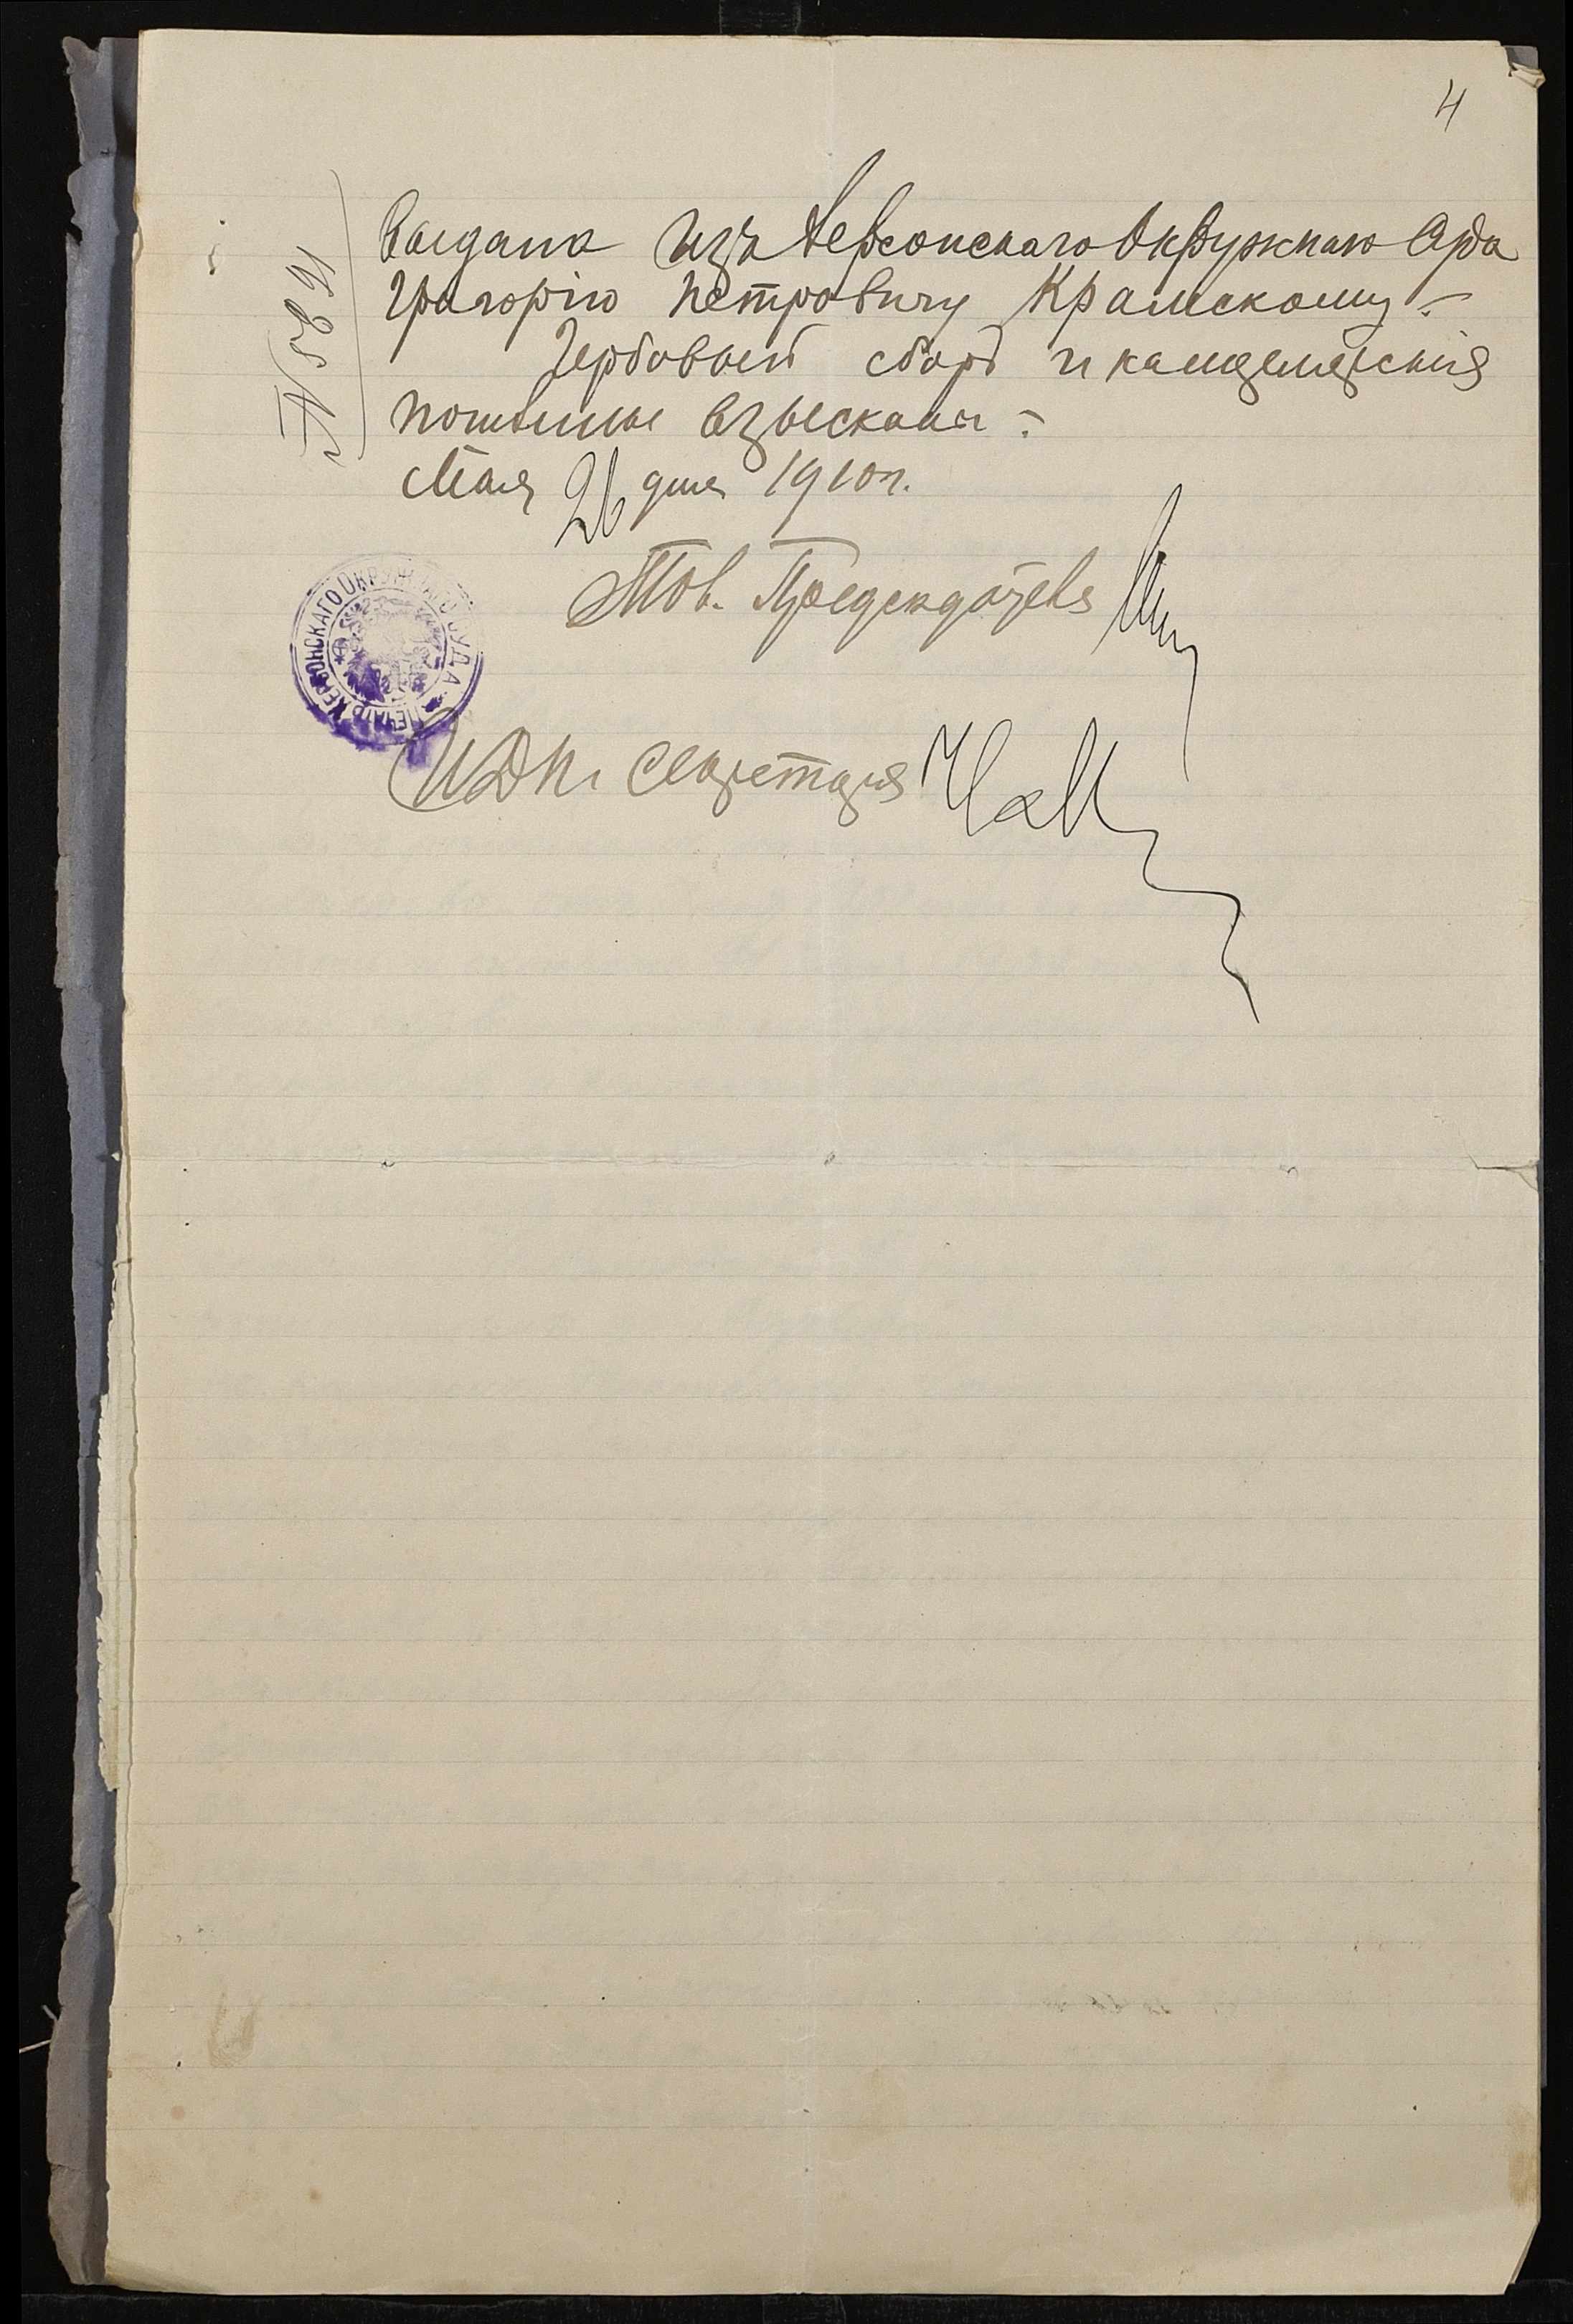 4
Выдана изъ Херсонскаго Окружнаго Суда
Григорію Петровичу Крамскому.
Гербовый сборъ и канцелярскія
пошлины взысканы.
Мая 26 дня 1910 г.
Тов. Предсѣдателя
И Д П. Секретаря
ПЕЧАТЬ ХЕРСОНСКАГО ОКРУЖНАГО СУДА